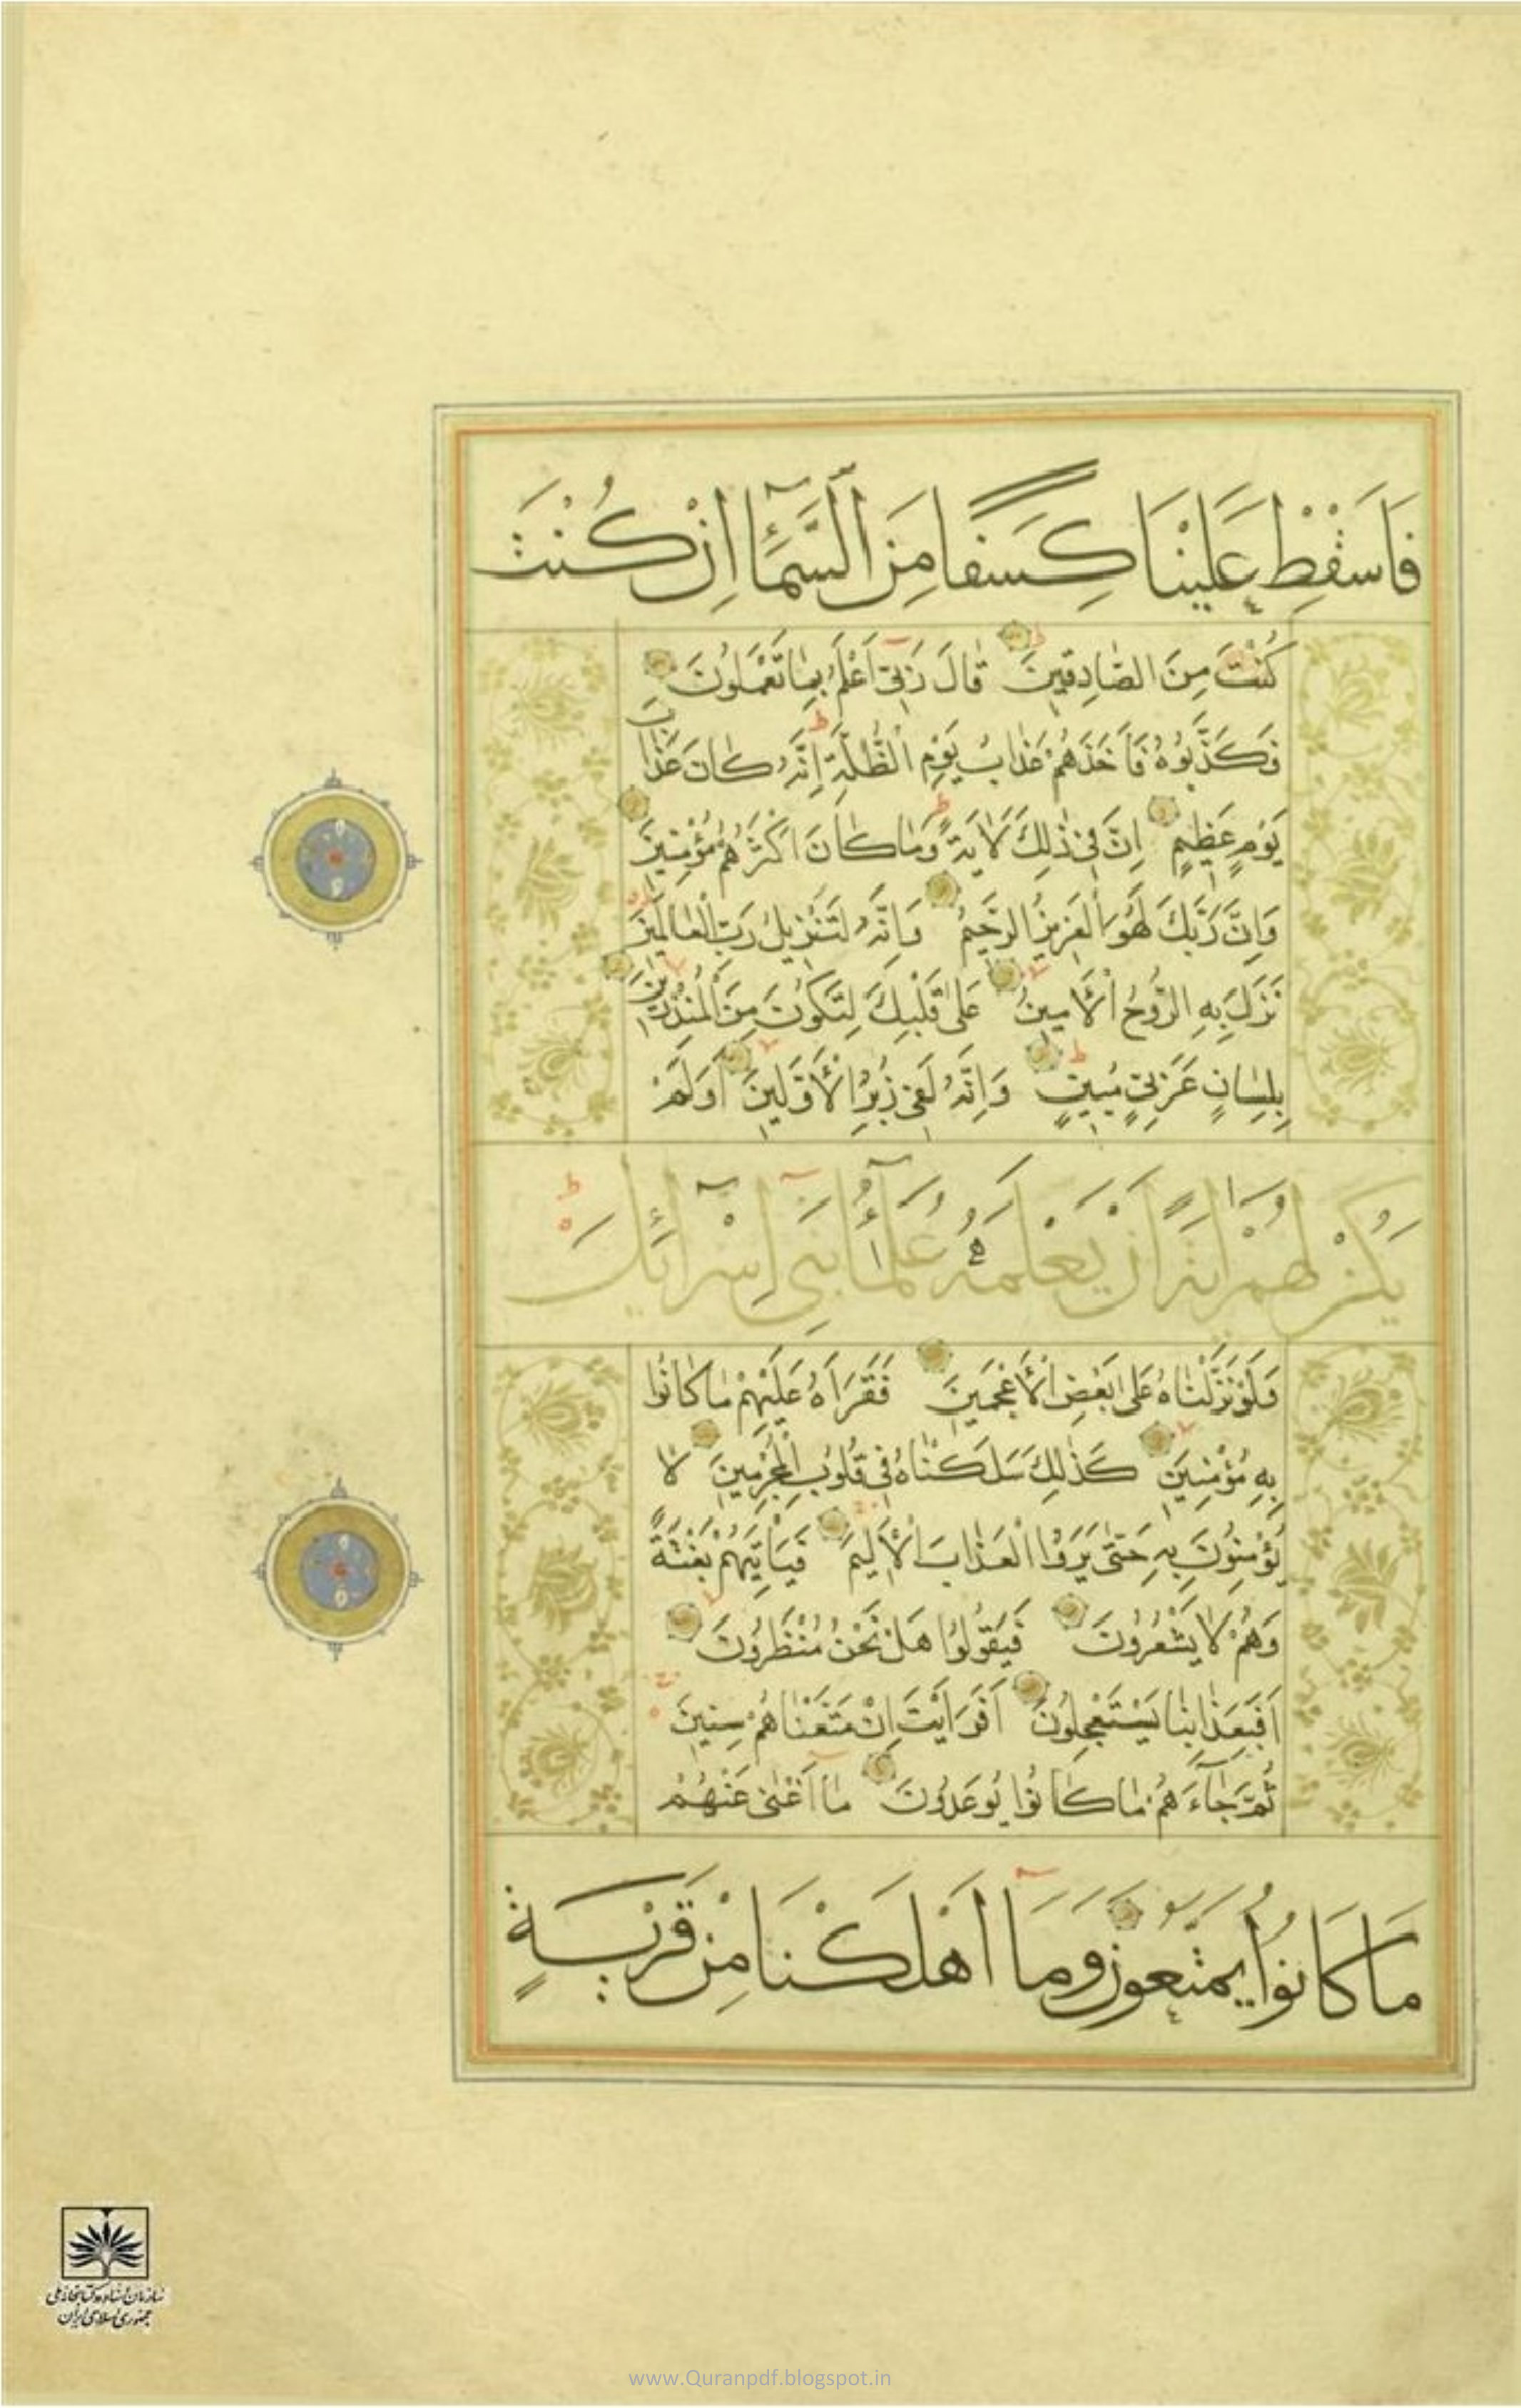 فَاَسْقِطْ عَلَيْنَا كِسَفًا مِنَ السَّمَآءِ اِنْ كُنْتَ
كُنْتَ مِنَ الصَّادِقِينَ قَالَ رَبِّي اَعْلَمُ بِمَا تَعْمَلُونَ
فَكَذَّبُوهُ فَاَخَذَهُمْ عَذَابُ يَوْمِ الظُّلَّةِ اِنَّهُ كَانَ عَذَابَ
يَوْمٍ عَظِيمٍ اِنَّ فِي ذٰلِكَ لَاٰيَةً وَمَا كَانَ اَكْثَرُهُمْ مُؤْمِنِينَ
وَاِنَّ رَبَّكَ لَهُوَ الْعَزِيزُ الرَّحِيمُ وَاِنَّهُ لَتَنْزِيلُ رَبِّ الْعَالَمِينَ
نَزَلَ بِهِ الرُّوحُ الْاَمِينُ عَلٰى قَلْبِكَ لِتَكُونَ مِنَ الْمُنْذِرِينَ
بِلِسَانٍ عَرَبِيٍّ مُبِينٍ وَاِنَّهُ لَفِي زُبُرِ الْاَوَّلِينَ اَوَلَمْ
يَكُنْ لَهُمْ اٰيَةً اَنْ يَعْلَمَهُ عُلَمٰٓؤُا بَنِٓي اِسْرَآئِيلَ
وَلَوْ نَزَّلْنَاهُ عَلٰى بَعْضِ الْاَعْجَمِينَ فَقَرَاَهُ عَلَيْهِمْ مَا كَانُوا
بِهِ مُؤْمِنِينَ كَذٰلِكَ سَلَكْنَاهُ فِي قُلُوبِ الْمُجْرِمِينَ لَا
يُؤْمِنُونَ بِهِ حَتّٰى يَرَوُا الْعَذَابَ الْاَلِيمَ فَيَاْتِيَهُمْ بَغْتَةً
وَهُمْ لَا يَشْعُرُونَ فَيَقُولُوا هَلْ نَحْنُ مُنْظَرُونَ
اَفَبِعَذَابِنَا يَسْتَعْجِلُونَ اَفَرَاَيْتَ اِنْ مَتَّعْنَاهُمْ سِنِينَ
ثُمَّ جَآءَهُمْ مَا كَانُوا يُوعَدُونَ مَآ اَغْنٰى عَنْهُمْ
مَا كَانُوا يُمَتَّعُونَ وَمَآ اَهْلَكْنَا مِنْ قَرْيَةٍ
سازمان اسناد و کتابخانه ملی
جمهوری اسلامی ایران
www.Quranpdf.blogspot.in